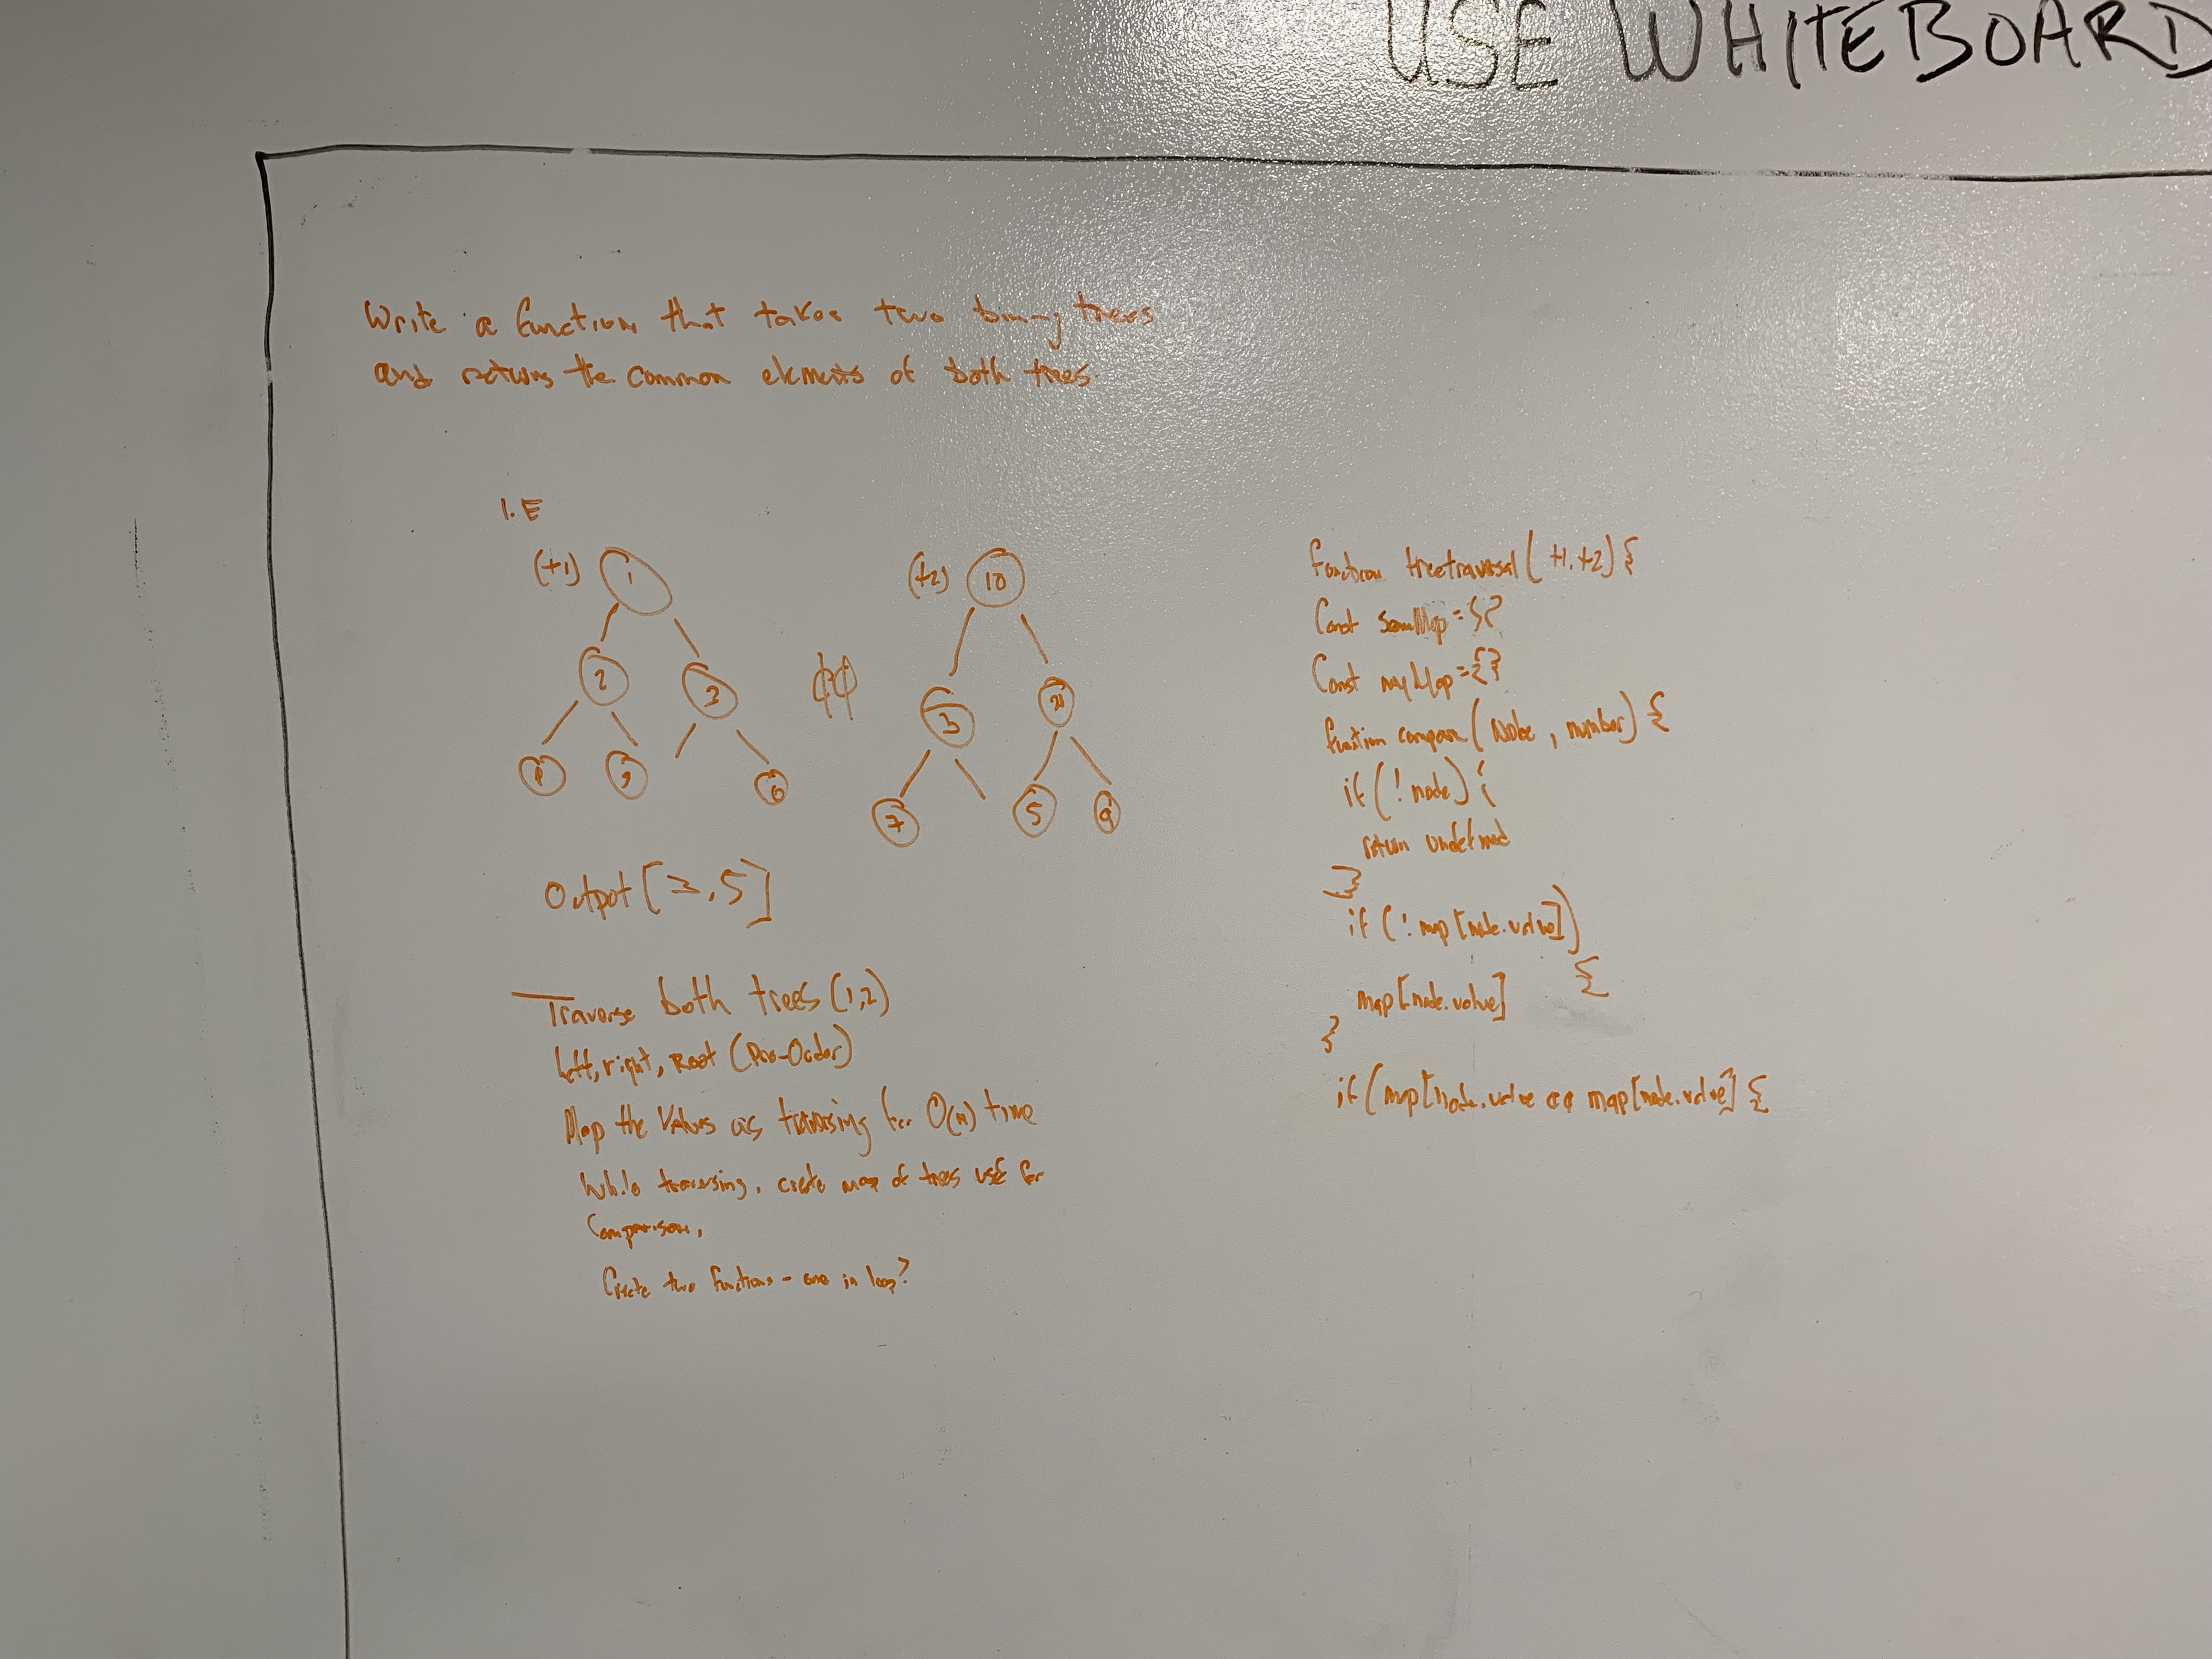 USE WHITEBOARD
Write a function that takes two binary trees
and returns the common elements of both trees.
I.E
(t1) 1
(t2) 10
2 3
3
5
6
7 5 9
Output [3,5]
Traverse both trees (1,2)
Left, right, Root (Pre-Order)
Map the Values as traversing for O(n) time
While traversing, create map of trees use for
Comparison,
Create two functions - one in loop?
function treetraversal( t1, t2) {
Const = {}
Const = {}
function compare( Node , number) {
if ( ! node) {
return undefined
}
if ( ! map[node.value])
{
map[node.value]
}
if ( map[node.value && map[node.value] {